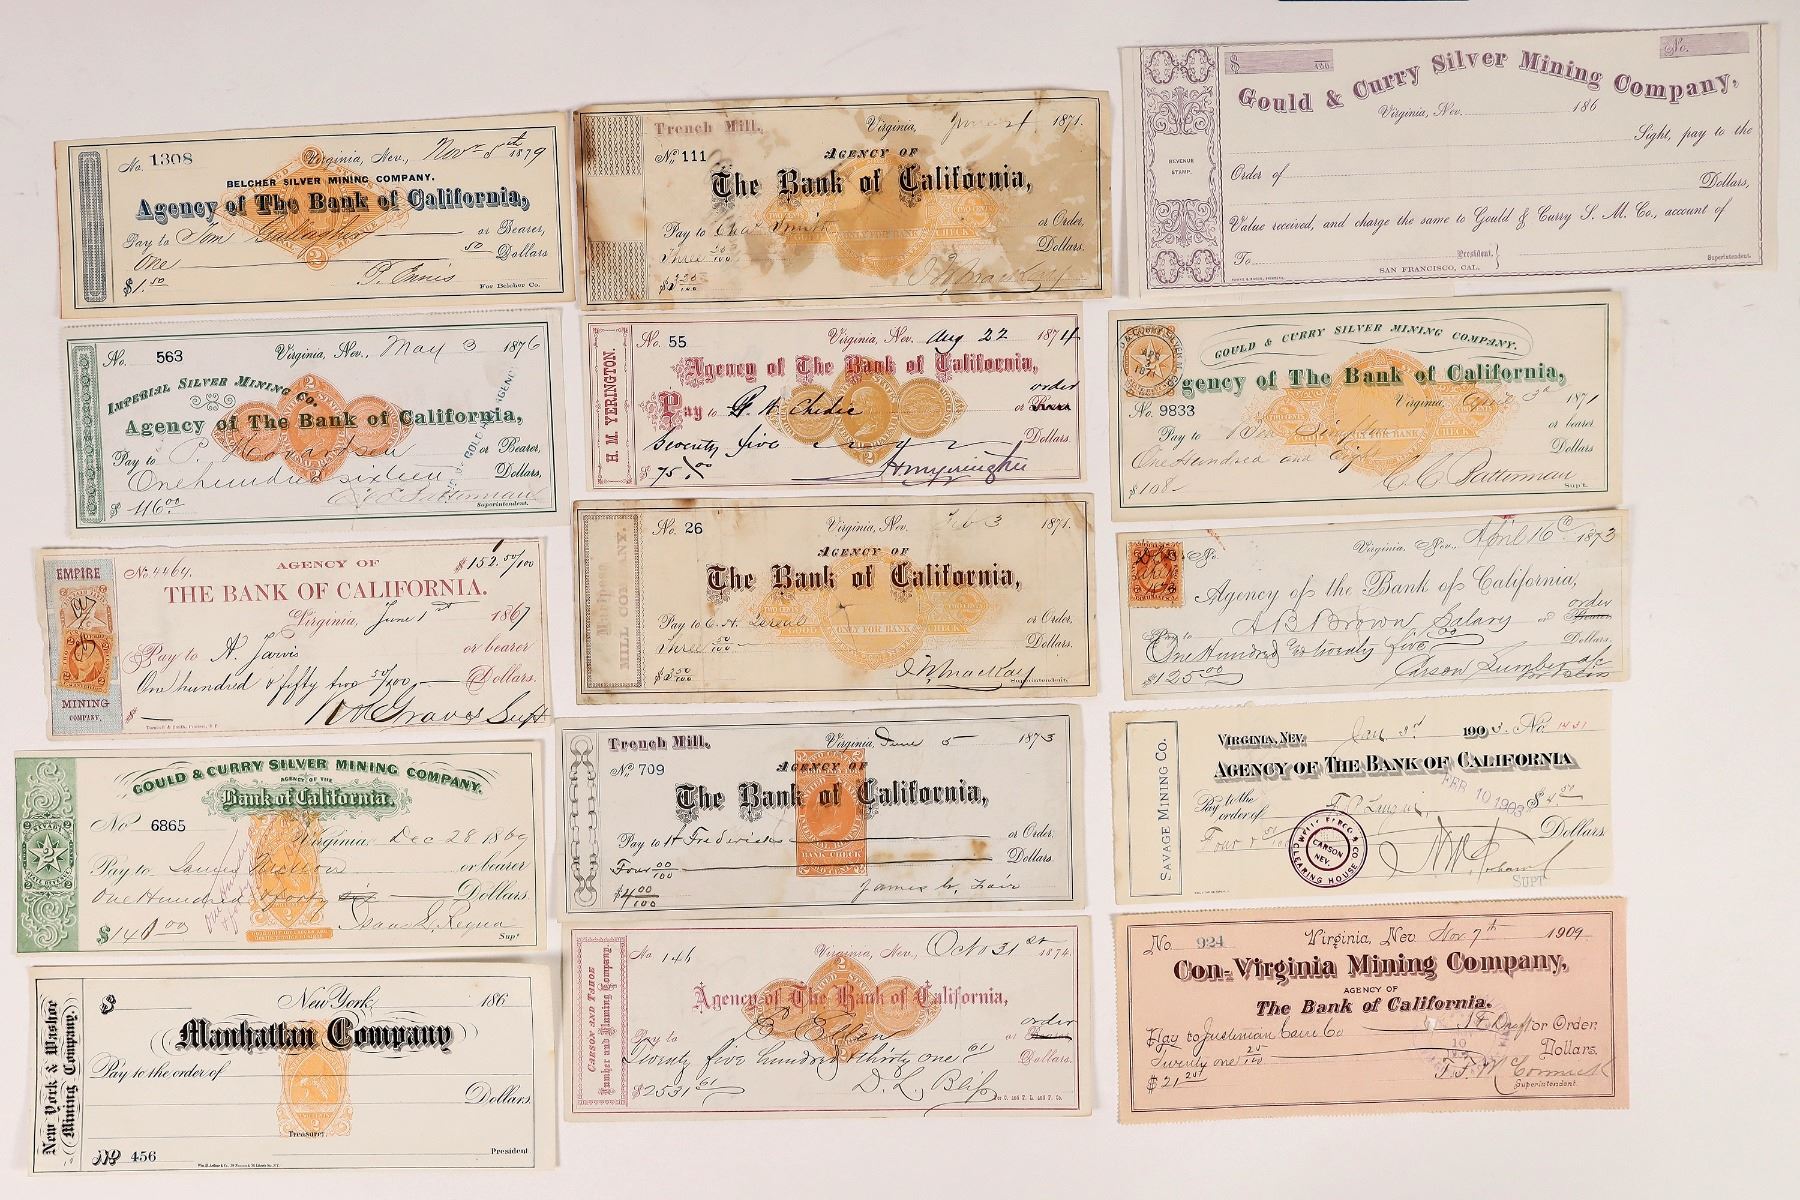 No. 1308 Virginia, Nev., Nov 5th 1879
BELCHER SILVER MINING COMPANY.
Agency of The Bank of California,
Pay to Tom Gallagher or Bearer,
One 50 Dollars
$1.50 P. Ennis
For Belcher Co.
No. 563 Virginia, Nev., May 3 1876
IMPERIAL SILVER MINING CO.
Agency of The Bank of California,
Pay to P. or Bearer,
One hundred sixteen Dollars.
$116.00 C. C. Batterman
Superintendent.
EMPIRE
MINING
COMPANY.
No. 4464. AGENCY OF $152.50/100
THE BANK OF CALIFORNIA.
Virginia, June 1st 1867
Pay to A. Jarvis or bearer
One hundred & fifty two 50/100 Dollars.
Supt
GOULD & CURRY SILVER MINING COMPANY.
AGENCY OF THE
Bank of California.
No 6865 Virginia Dec 28 1869
Pay to or bearer
One Hundred & forty Dollars.
$140.00 Isaac L. Requa
Supt
New York & Washoe
Mining Company.
$ New York, 186
Manhattan Company
Pay to the order of
Dollars.
Treasurer.
No 456 President
Trench Mill. Virginia, June 21 1871.
No. 111 AGENCY OF
The Bank of California,
Pay to Chas Smith or Order,
Three 20/100 Dollars.
$3 20/100 J W Mackay
H. M. YERINGTON.
No. 55 Virginia, Nev. Aug 22 1874
Agency of The Bank of California,
order
Pay to or Bearer
Seventy five Dollars.
$75.00 H M Yerington
Mariposa
MILL COMPANY.
No. 26 Virginia, Nev. Feb 3 1871.
AGENCY OF
The Bank of California,
Pay to C. H. or Order,
Three 50/100 Dollars.
$3 50/100 J W Mackay
Superintendent.
Trench Mill. Virginia, June 5 1873
No. 709 AGENCY OF
The Bank of California,
Pay to H Fredericks or Order,
BANK CHECK
Four 00/100 Dollars.
$4 00/100 James G. Fair
CARSON AND TAHOE
Lumber and Fluming Company.
No 146 Virginia, Nev., Oct 31st 1874
Agency of The Bank of California,
order
Pay to or Bearer
Twenty five hundred & thirty one 61 Dollars.
$2531 61 D. L. Bliss
For C. and T. L. and F. Co.
$ 186 No.
Gould & Curry Silver Mining Company,
Virginia, Nev. 186
REVENUE
STAMP.
Sight, pay to the
Order of Dollars,
Value received, and charge the same to Gould & Curry S. M. Co., account of
To President.
SAN FRANCISCO, CAL. Superintendent.
GOULD & CURRY SILVER MINING COMPANY.
Agency of The Bank of California,
Virginia, April 3d 1871
No. 9833
Pay to Ben Simpson or bearer
One Hundred and Eight Dollars.
$108 C C Batterman
Supt.
No. Virginia, Nev., April 16th 1873
Agency of the Bank of California,
order
Pay to A B Brown Salary or Bearer
One Hundred & twenty five 00 Dollars.
$125.00 Carson Lumber a/c
SAVAGE MINING CO.
VIRGINIA, NEV. Jan 3rd 1903. No 1431
AGENCY OF THE BANK OF CALIFORNIA
FEB 10 1903
Pay to the
order of $4.50
Four & 50/100 Dollars.
WELLS FARGO & CO
CARSON
NEV.
CLEARING HOUSE
SUPT
No. 924 Virginia, Nev Nov. 7th 1909
Con-Virginia Mining Company,
AGENCY OF
The Bank of California.
Pay to or Order.
Twenty one 25/100 Dollars.
$21.25 McCormick
Superintendent.